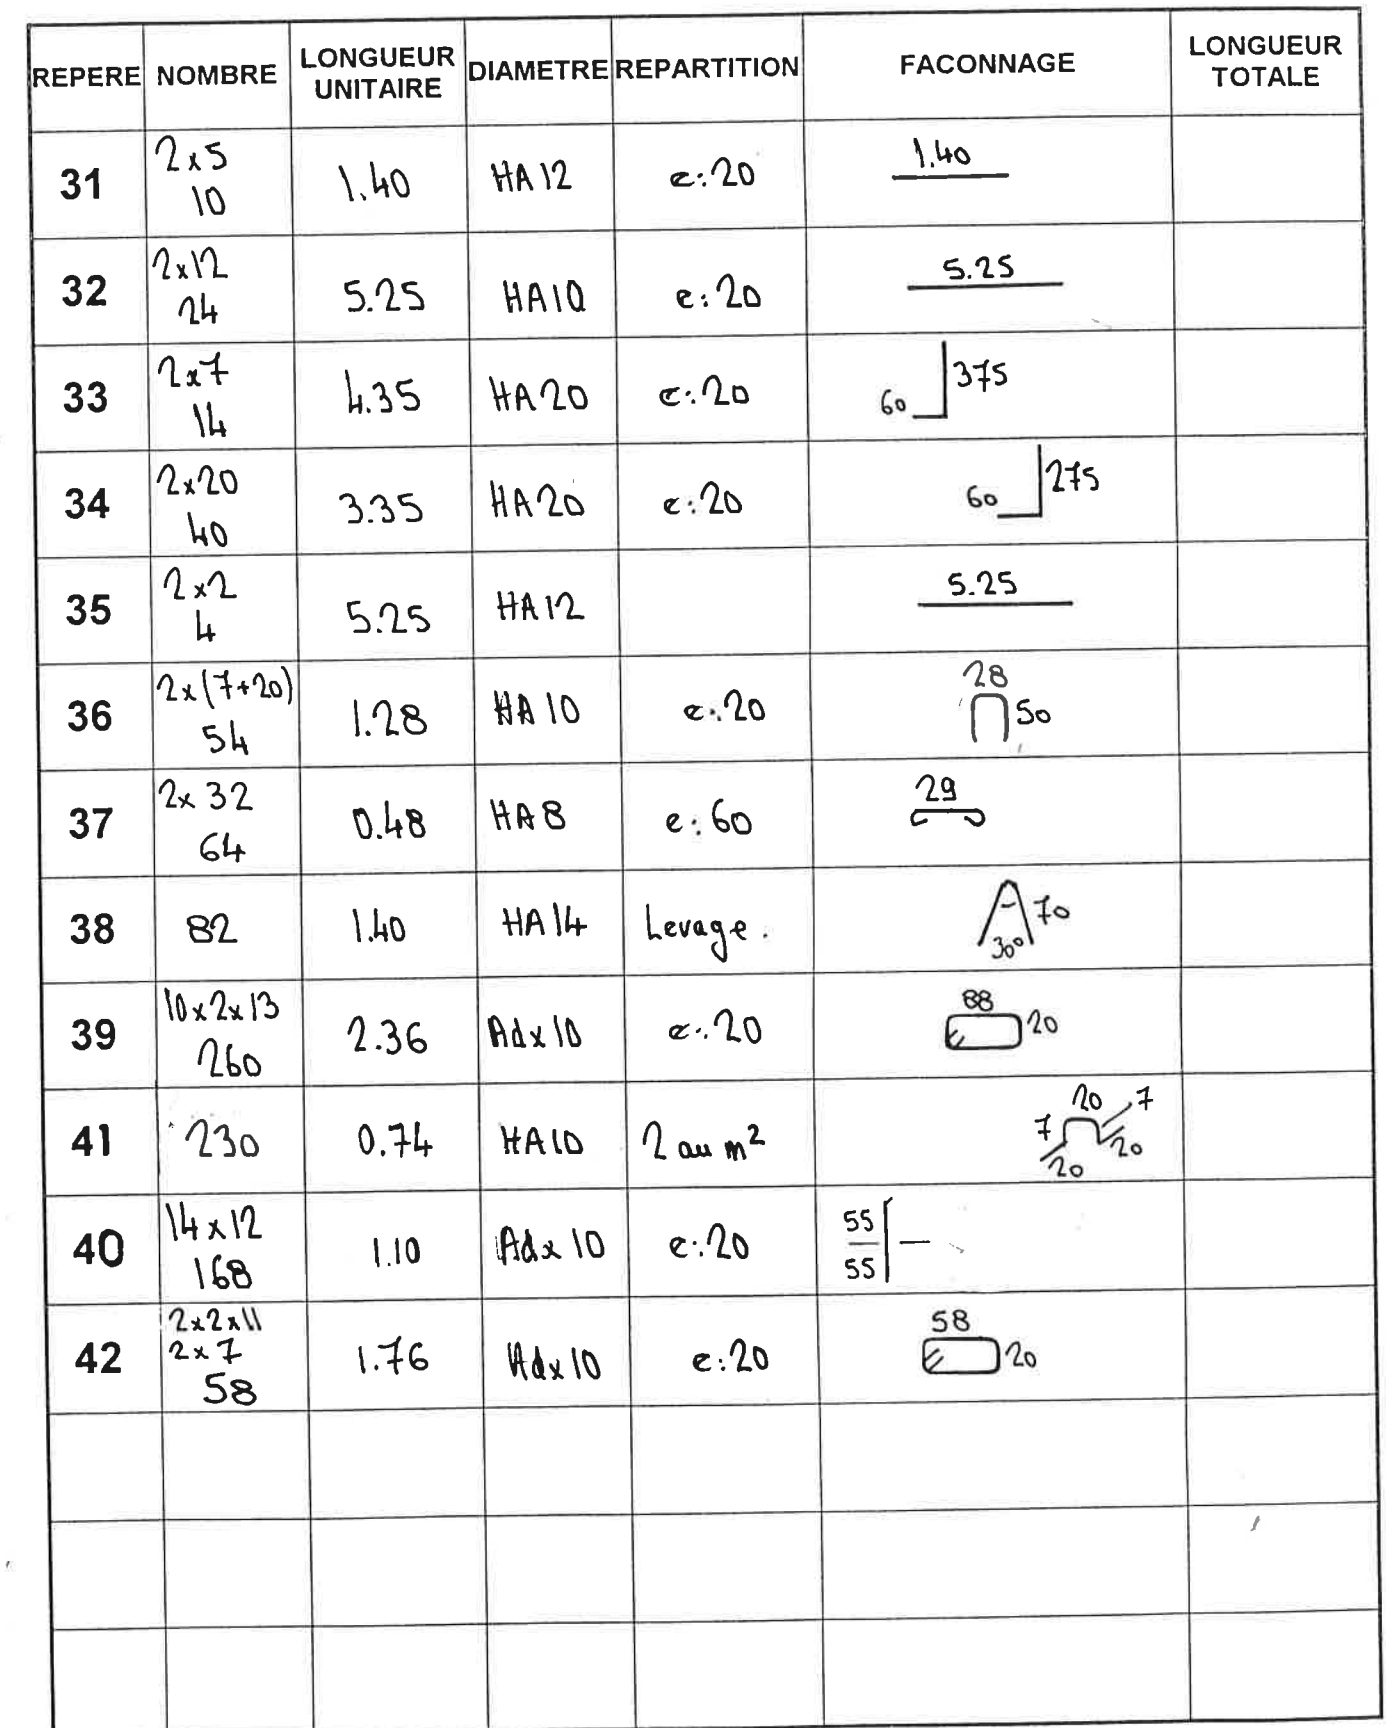 REPERE NOMBRE LONGUEUR UNITAIRE DIAMETRE REPARTITION FACONNAGE LONGUEUR TOTALE
31 2x5 10 1.40 HA12 e:20 1.40
32 2x12 24 5.25 HA10 e:20 5.25
33 2x7 14 4.35 HA20 e:20 60 375
34 2x20 40 3.35 HA20 e:20 60 275
35 2x2 4 5.25 HA12 5.25
36 2x(7+20) 54 1.28 HA10 e:20 28 50
37 2x32 64 0.48 HA8 e:60 29
38 82 1.40 HA14 Levage. 70 30°
39 10x2x13 260 2.36 Adx10 e:20 88 20
41 230 0.74 HA10 2 au m² 7 20 7 20 20
40 14x12 168 1.10 Adx10 e:20 55 55
42 2x2x11 2x7 58 1.76 Adx10 e:20 58 20